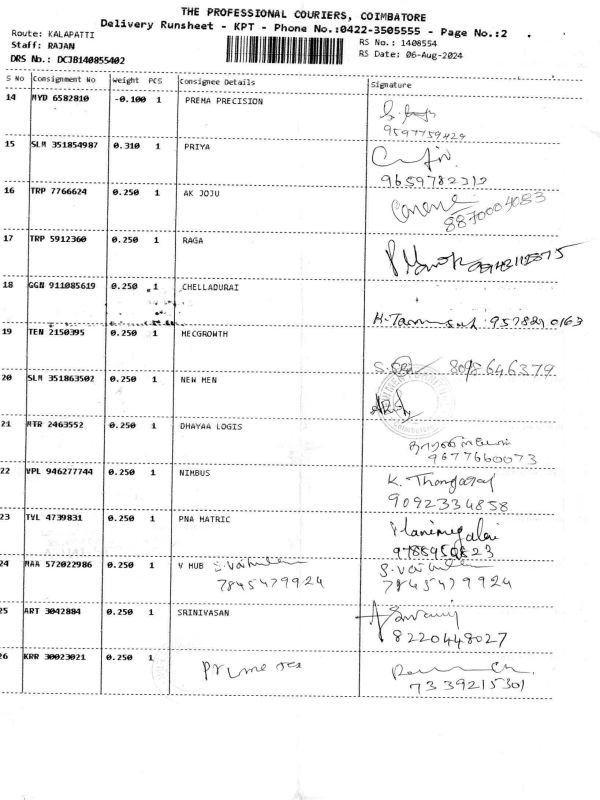 THE PROFESSIONAL COURIERS, COIMBATORE
Delivery Runsheet - KPT - Phone No.:0422-3505555 - Page No.:2
Route: KALAPATTI
Staff: RAJAN
RS No.: 1408554
DRS No.: DCJB140855402
RS Date: 06-Aug-2024
S No Consignment No Weight PCS Consignee Details Signature
14 MYD 6582810 -0.100 1 PREMA PRECISION
9597759429
15 SLM 351854987 0.310 1 PRIYA
9659782312
16 TRP 7766624 0.250 1 AK JOJU
8870004083
17 TRP 5912360 0.250 1 RAGA
18 GGN 911085619 0.250 1 CHELLADURAI
19 TEN 2150395 0.250 1 MECGROWTH
8098646379
20 SLM 351863502 0.250 1 NEW MEN
21 MTR 2463552 0.250 1 DHAYAA LOGIS
9677660073
22 VPL 946277744 0.250 1 NIMBUS
K. Thangaraj
9092334858
23 TVL 4739831 0.250 1 PNA MATRIC
Manimegalai
24 MAA 572022986 0.250 1 V HUB
7845479924 7845479924
25 ART 3042884 0.250 1 SRINIVASAN
8220448027
26 KRR 30023021 0.250 1
7339215301